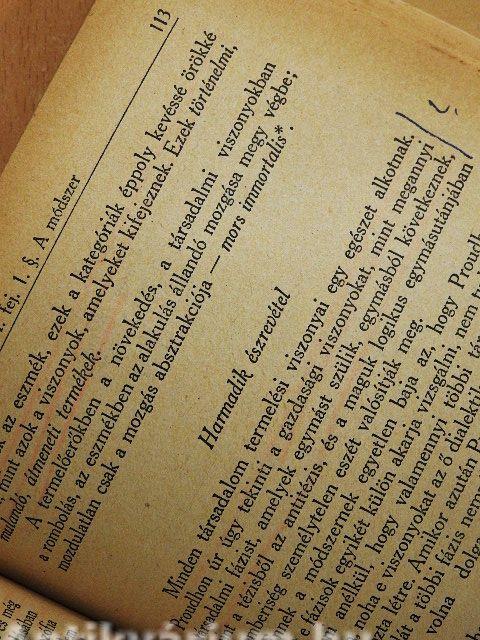 fej. 1. §. A módszer 113
az eszmék, ezek a kategóriák éppoly kevéssé örökké
mint azok a viszonyok, amelyeket kifejeznek. Ezek történelmi,
mulandó, átmeneti termékek.
A termelőerőkben a növekedés, a társadalmi viszonyokban
a rombolás, az eszmékben az alakulás állandó mozgása megy végbe;
mozdulatlan csak a mozgás absztrakciója — mors immortalis*.
Harmadik észrevétel
Minden társadalom termelési viszonyai egy egészet alkotnak.
Proudhon úr úgy tekinti a gazdasági viszonyokat, mint megannyi
társadalmi fázist, amelyek egymást szülik, egymásból következnek,
a tézisből az antitézis, és a maguk logikus egymásutánjában
személytelen eszét valósítják meg.
a módszernek egyetlen baja az, hogy
fázisok egyikét külön akarja vizsgálni, nem
anélkül, hogy valamennyi többi
noha e viszonyokat az ő
létre. Amikor azután
a többi fázis